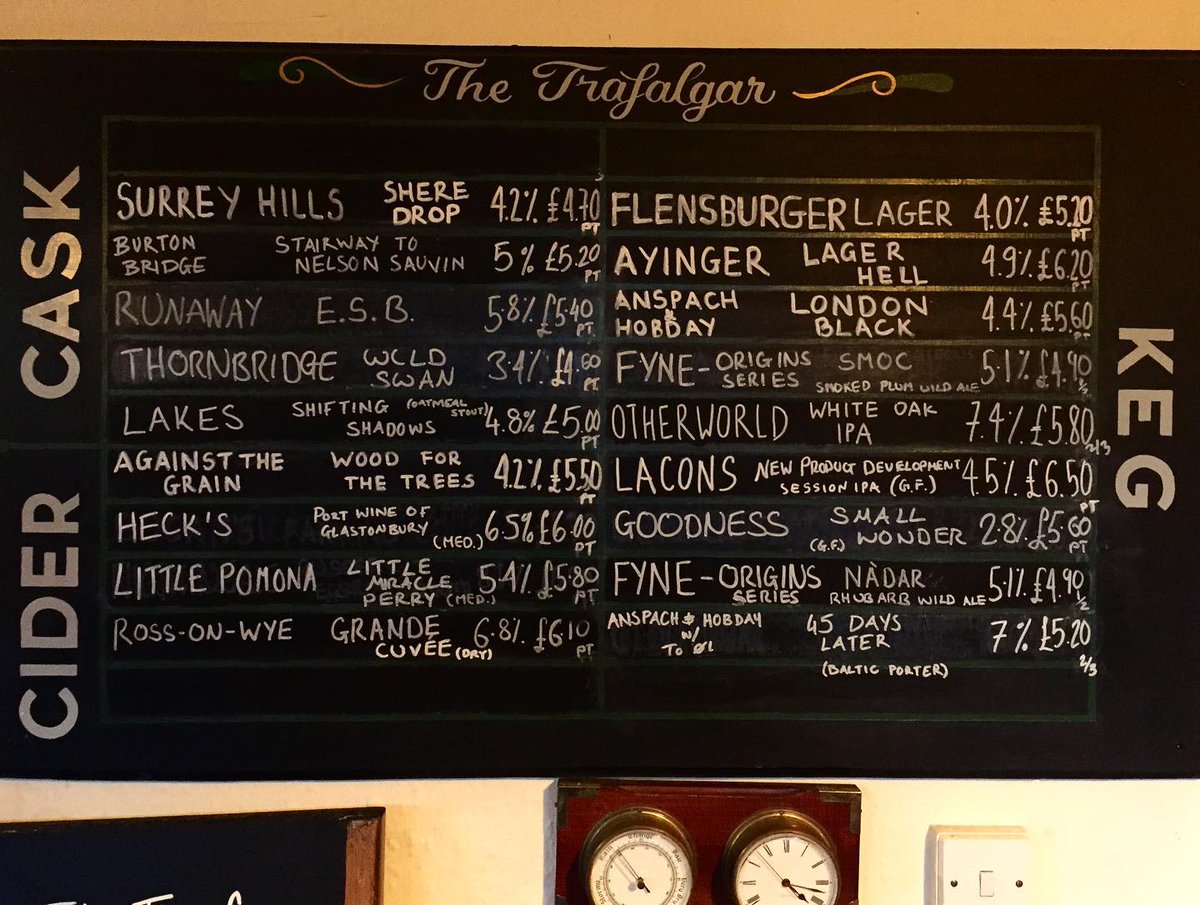 The Trafalgar
CASK
SURREY HILLS SHERE DROP 4.2% £4.70 PT
BURTON BRIDGE STAIRWAY TO NELSON SAUVIN 5% £5.20 PT
RUNAWAY E.S.B. 5.8% £5.40 PT
THORNBRIDGE WILD SWAN 3.4% £4.60 PT
LAKES SHIFTING SHADOWS (OATMEAL STOUT) 4.8% £5.00 PT
CIDER
AGAINST THE GRAIN WOOD FOR THE TREES 4.2% £5.50 PT
HECK'S PORT WINE OF GLASTONBURY (MED.) 6.5% £6.00 PT
LITTLE POMONA LITTLE MIRACLE PERRY (MED.) 5.4% £5.80 PT
ROSS-ON-WYE GRANDE CUVÉE (DRY) 6.8% £6.10 PT
KEG
FLENSBURGER LAGER 4.0% £5.20 PT
AYINGER LAGER HELL 4.9% £6.20 PT
ANSPACH & HOBDAY LONDON BLACK 4.4% £5.60 PT
FYNE-ORIGINS SERIES SMOC SMOKED PLUM WILD ALE 5.1% £4.90 1/2
OTHERWORLD WHITE OAK IPA 7.4% £5.80 2/3
LACONS NEW PRODUCT DEVELOPMENT SESSION IPA (G.F.) 4.5% £6.50 PT
GOODNESS SMALL WONDER (G.F.) 2.8% £5.60 PT
FYNE-ORIGINS SERIES NÀDAR RHUBARB WILD ALE 5.1% £4.90 1/2
ANSPACH & HOBDAY W/ TO ØL 45 DAYS LATER (BALTIC PORTER) 7% £5.20 2/3